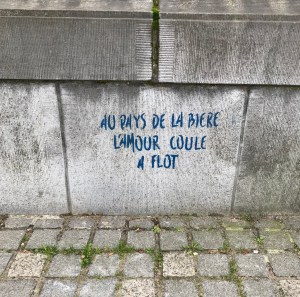 AU PAYS DE LA BIERE
L'AMOUR COULE
A FLOT